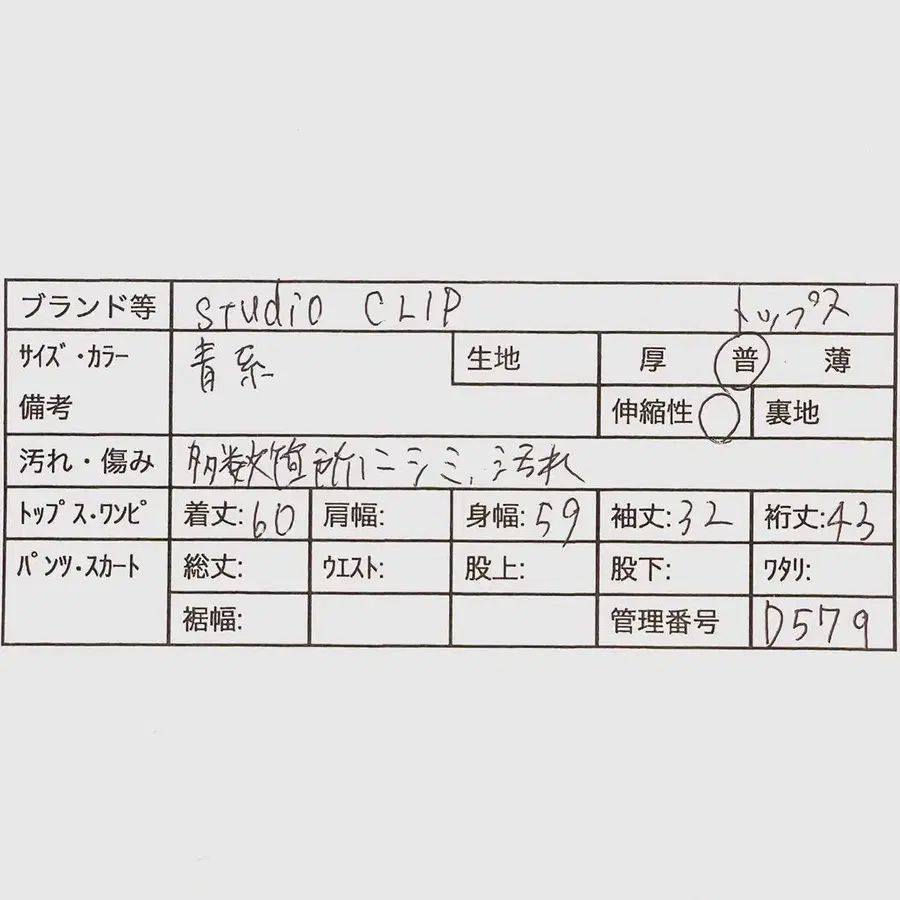 ブランド等 studio CLIP トップス
サイズ・カラー 青系 生地 厚 普 薄
備考 伸縮性 裏地
汚れ・傷み 多数箇所にシミ、汚れ
トップス・ワンピ 着丈:60 肩幅: 身幅:59 袖丈:32 裄丈:43
パンツ・スカート 総丈: ウエスト: 股上: 股下: ワタリ:
裾幅: 管理番号 D579